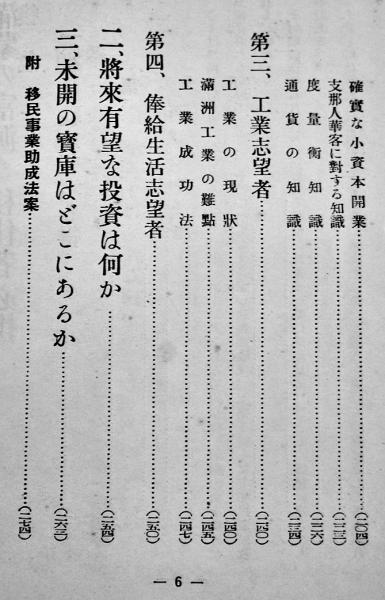 確實な小資本開業……(二〇四)
支那人華客に對する知識……(二二三)
度量衡知識……(二二六)
通貨の知識……(二三四)
第三、工業志望者……(二四〇)
工業の現狀……(二四〇)
滿洲工業の難點……(二四五)
工業成功法……(二四七)
第四、俸給生活志望者……(二五〇)
二、將來有望な投資は何か……(二五四)
三、未開の寳庫はどこにあるか……(二六三)
附 移民事業助成法案……(二七四)
— 6 —